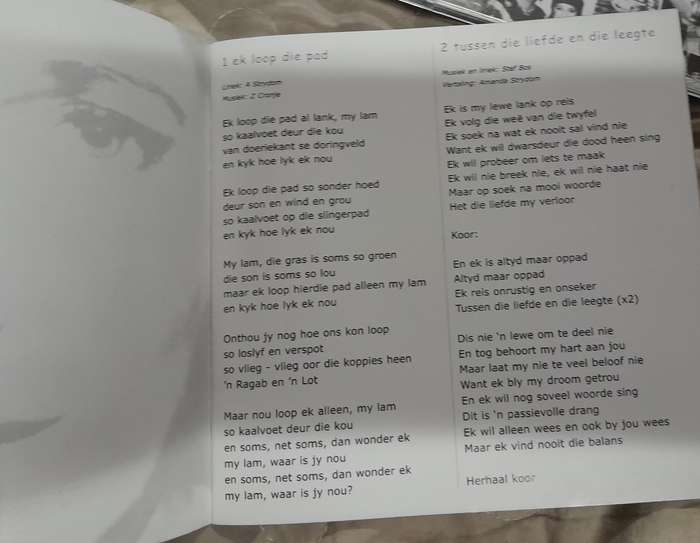 1 ek loop die pad
Liriek: A Strydom
Musiek: Z Cronje
Ek loop die pad al lank, my lam
so kaalvoet deur die kou
van doeriekant se doringveld
en kyk hoe lyk ek nou
Ek loop die pad so sonder hoed
deur son en wind en grou
so kaalvoet op die slingerpad
en kyk hoe lyk ek nou
My lam, die gras is soms so groen
die son is soms so lou
maar ek loop hierdie pad alleen my lam
en kyk hoe lyk ek nou
Onthou jy nog hoe ons kon loop
so loslyf en verspot
so vlieg - vlieg oor die koppies heen
'n Ragab en 'n Lot
Maar nou loop ek alleen, my lam
so kaalvoet deur die kou
en soms, net soms, dan wonder ek
my lam, waar is jy nou
en soms, net soms, dan wonder ek
my lam, waar is jy nou?
2 tussen die liefde en die leegte
Musiek en liriek: Stef Bos
Vertaling: Amanda Strydom
Ek is my lewe lank op reis
Ek volg die weë van die twyfel
Ek soek na wat ek nooit sal vind nie
Want ek wil dwarsdeur die dood heen sing
Ek wil probeer om iets te maak
Ek wil nie breek nie, ek wil nie haat nie
Maar op soek na mooi woorde
Het die liefde my verloor
Koor:
En ek is altyd maar oppad
Altyd maar oppad
Ek reis onrustig en onseker
Tussen die liefde en die leegte (x2)
Dis nie 'n lewe om te deel nie
En tog behoort my hart aan jou
Maar laat my nie te veel beloof nie
Want ek bly my droom getrou
En ek wil nog soveel woorde sing
Dit is 'n passievolle drang
Ek wil alleen wees en ook by jou wees
Maar ek vind nooit die balans
Herhaal koor